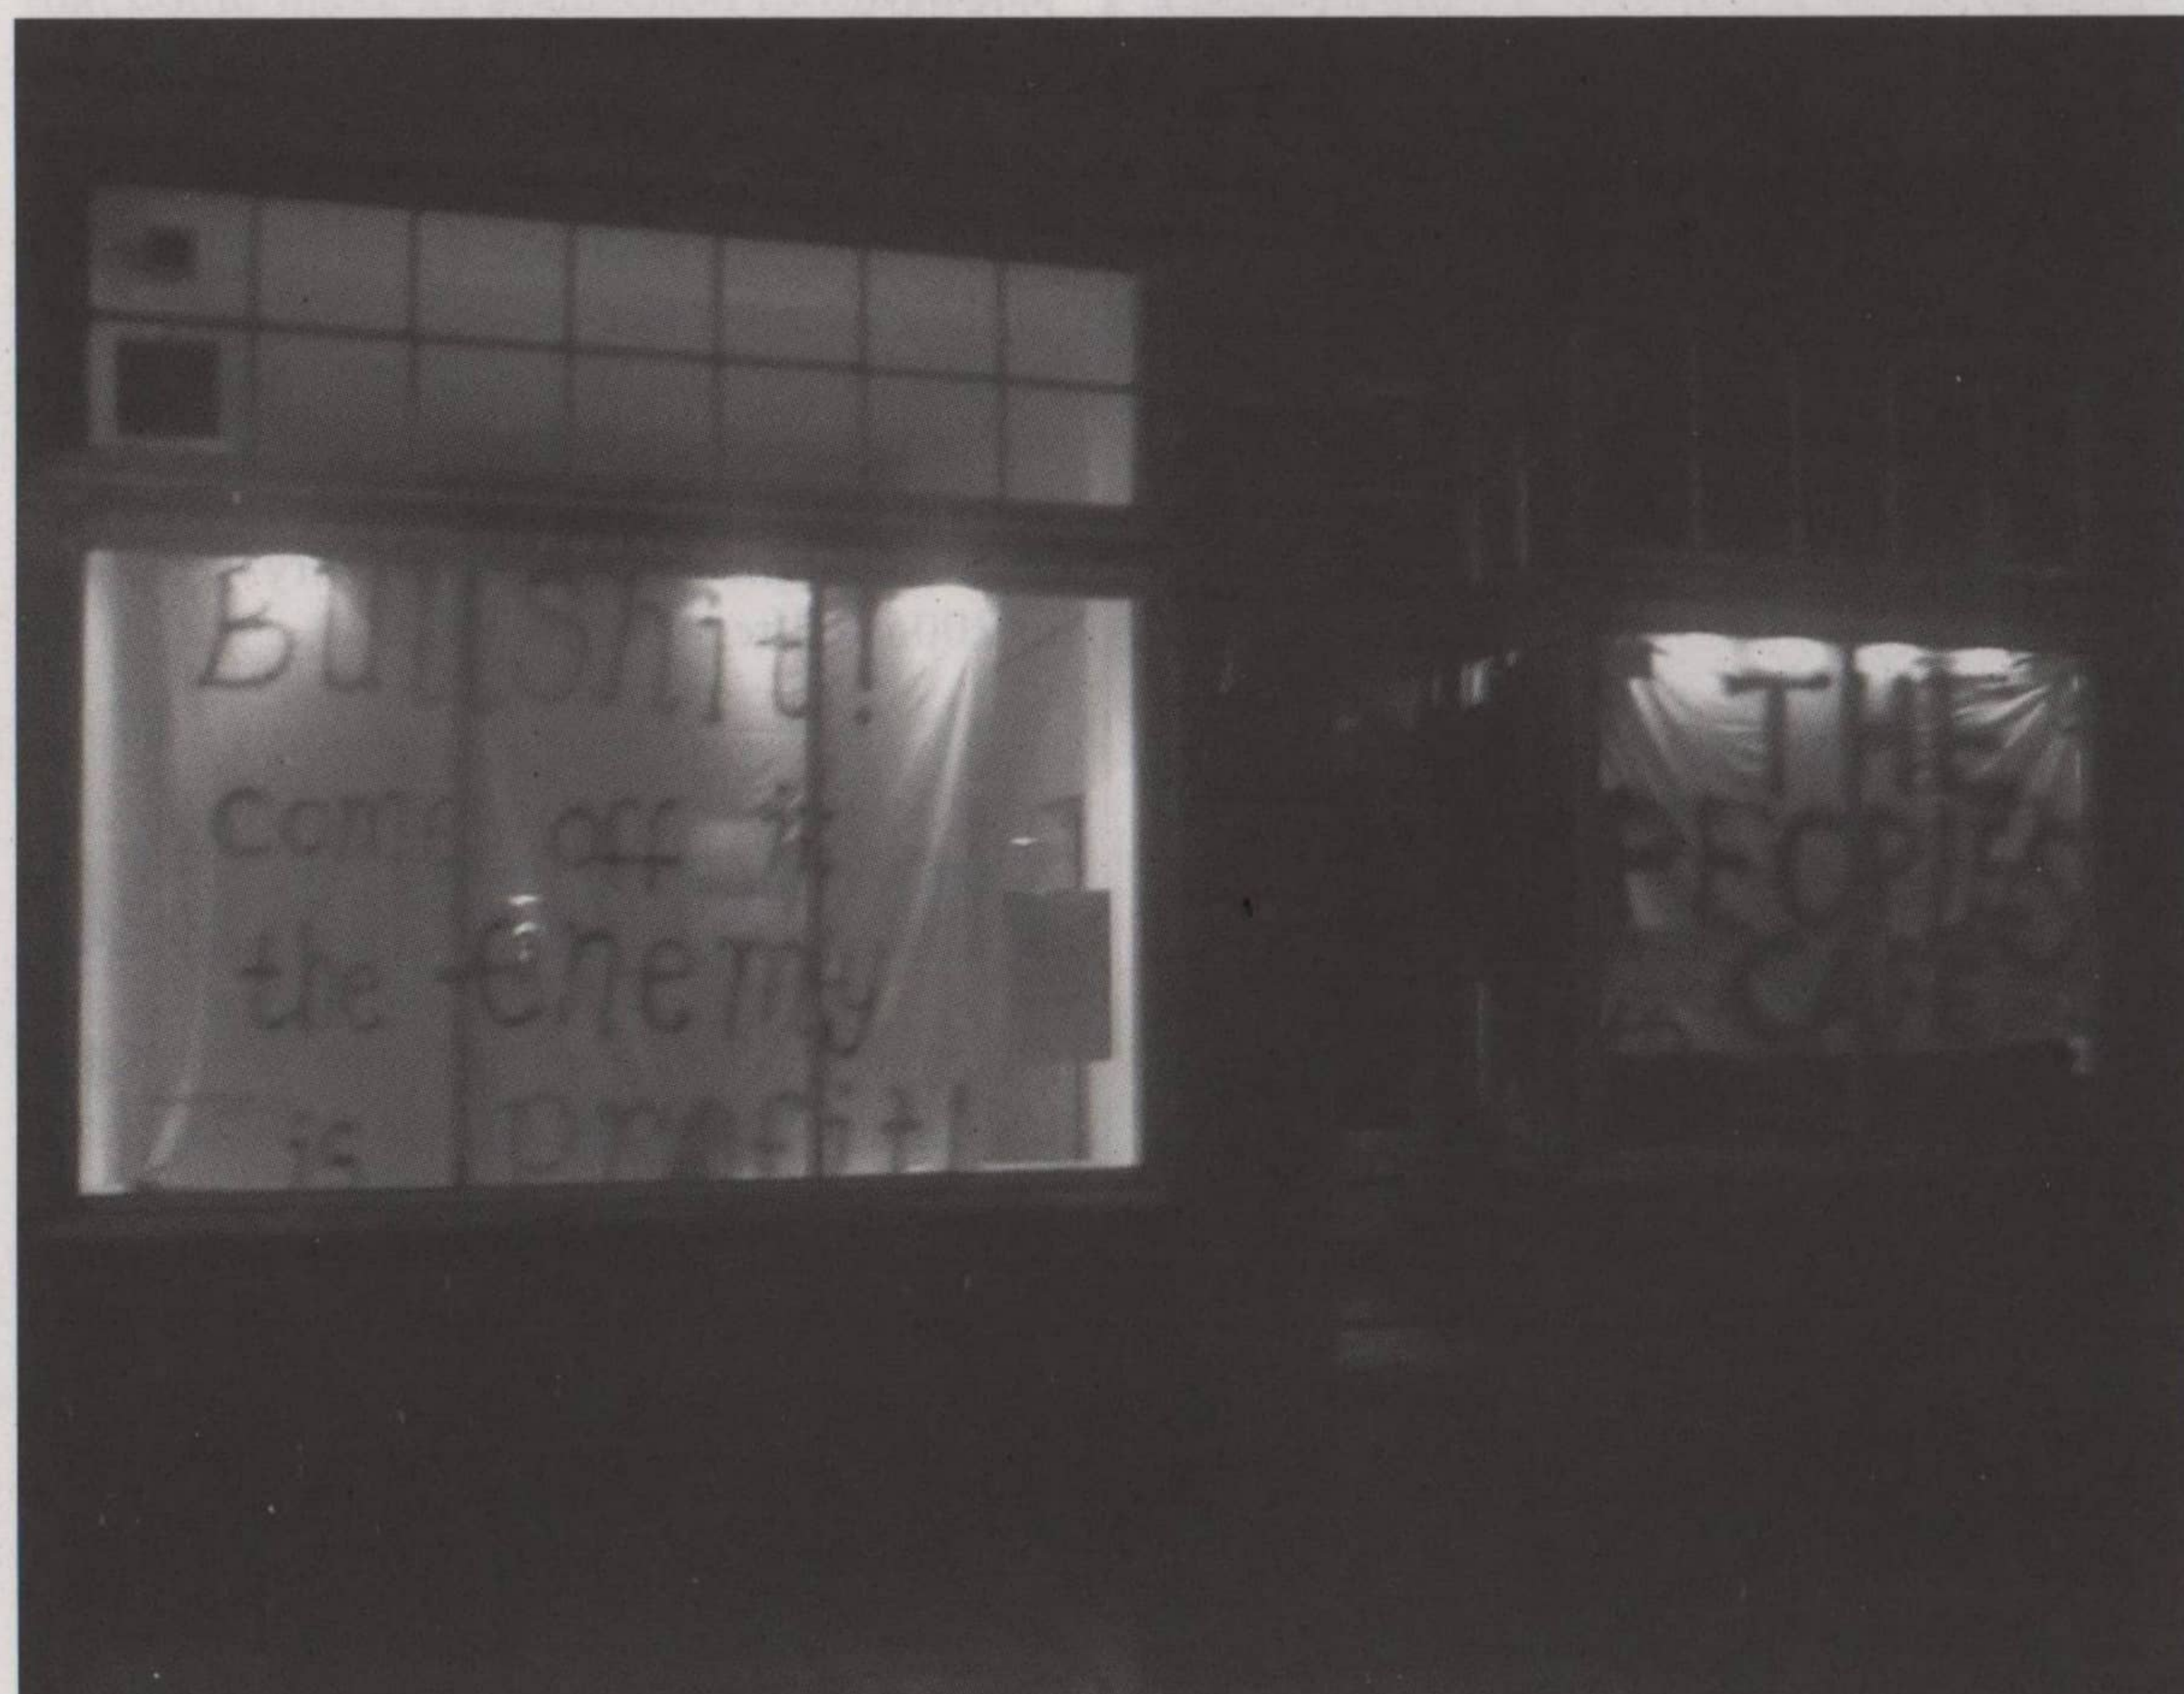 Bullshit!
come off it
the enemy
is profit!
THE
PEOPLES
CAFE